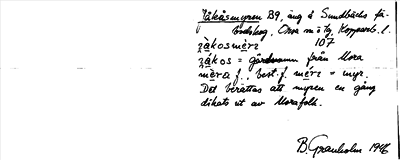 Jåkåsmyren B9, äng å Sundbäcks fä-
bodskog, Orsa s:n o tg, Kopparb. l.
107
zàkosmèrɛ
zákos = gårdsnamn från Mora
mèra f., best. f. mérɛ = myr.
Det berättas att myren en gång
dikats ut av Morafolk.
B. Granholm 1946